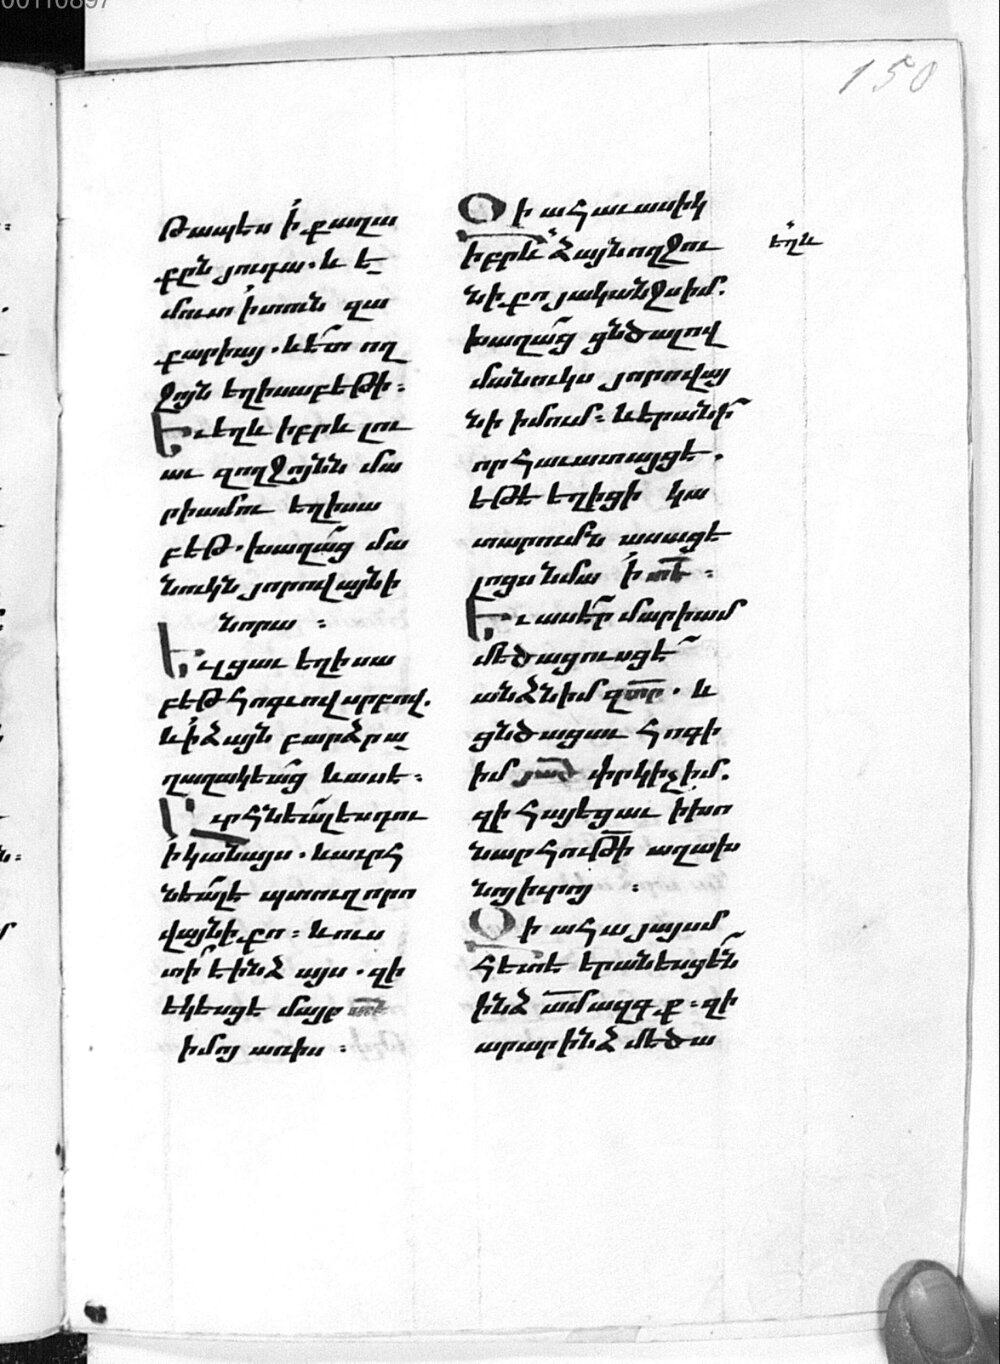 00110897
150
թապէս ՛ի քաղա
քըն յուդա. և ե
մուտ ՛ի տուն զա
քարիայ. և ետ ող
ջոյն եղիսաբեթի :
Եւ եղև իբրև լու
աւ զողջոյնն մա
րիամու եղիսա
բեթ. խաղաց մա
նուկն յորովայնի
նորա :
Եւ լցաւ եղիսա
բեթ հոգւով սրբով.
և ՛ի ձայն բարձր ա
ղաղակեաց և ասէ :
Օրհնեալ ես դու
՛ի կանայս. և օրհ
նեալ է պտուղ որո
վայնի քո : և ուս
տի է ինձ այս. զի
եկեսցէ մայր տն
իմոյ առիս :
Զի ահաւասիկ
իբրև ձայն ողջու
նի քո յականջս իմ.
խաղաց ցնծալով
մանուկս յորովայ
նի իմում : և երանի
որ հաւատայցէ.
եթէ եղիցի կա
տարումն ասացե
լոցս նմա ՛ի տէ :
Եւ ասէր մարիամ
մեծացուսցէ
անձն իմ զտր. և
ցնծացաւ հոգի
իմ յած փրկիչ իմ.
զի հայեցաւ ի խո
նարհութի աղախ
նոյ իւրոյ :
Զի ահա յայսմ
հետէ երանեսցեն
ինձ ամ ազգք : զի
արար ինձ մեծա
եղև